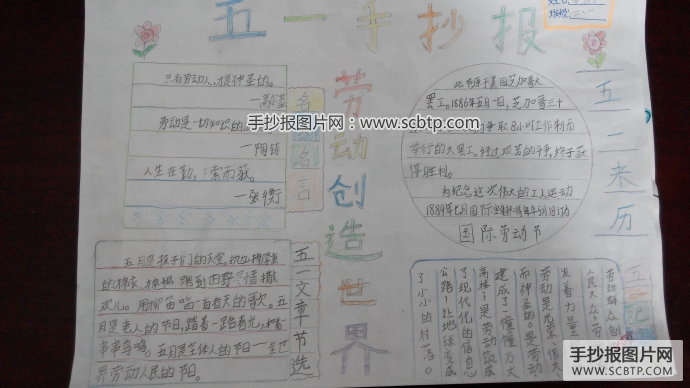 五一手抄报
只有劳动人,才是神圣的。
—高尔基
劳动是一切知识的
—陶铸
人生在勤,索而获。
—张衡
名人名言
劳动创造世界
此节源于美国芝加哥大
罢工。1886年五月一日,芝加哥三十
争取8小时工作制而
举行的大罢工。经过艰苦的斗争,终于获
得胜利。
为纪念这次伟大的工人运动
1889年七月国际
国际劳动节
五一来历
五月是孩子们的天堂。
的棉衣。
欢儿。用柳笛唱一首春天的歌。五
月是老人的节日,踏着一路春光,
串串鸟鸣。五月是全体人的节日—全世
界劳动人民的节日。
五一文章节选
劳动群众创
人民大众,劳
发着力量
劳动是光荣、伟大
而神圣的。是劳动
建成了幢幢万丈
高楼;是劳动筑成
了现代化的信息
公路,让地球变成
了小小的村落。
手抄报图片网:www.scbtp.com
手抄报图片网
WWW.SCBTP.COM